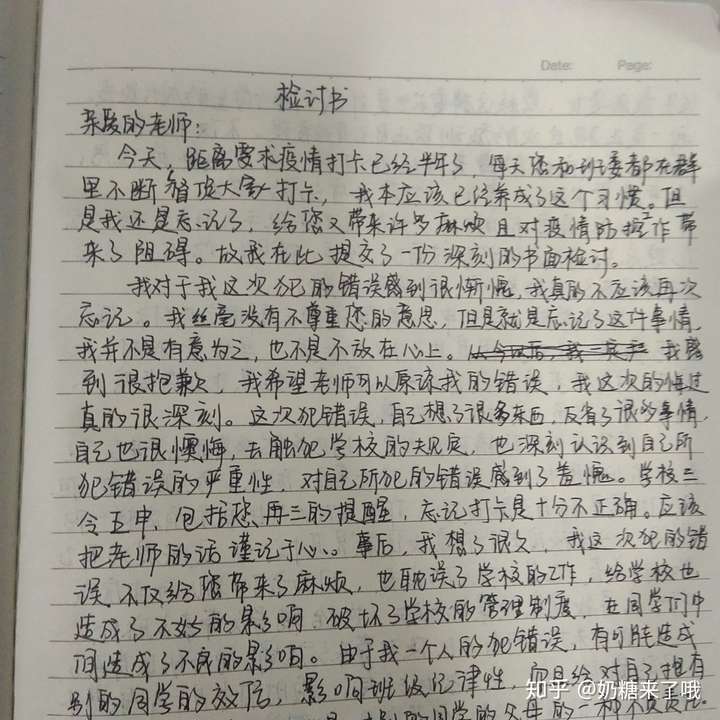 Date: Page:
检讨书
亲爱的老师：
今天，距离要求疫情打卡已经半年了，每天您和班委都在群
里不断督促大家打卡，我本应该已经养成了这个习惯。但
是我还是忘记了，给您又带来许多麻烦且对疫情防控工作带
来了阻碍。故我在此提交了一份深刻的书面检讨。
我对于我这次犯的错误感到很惭愧，我真的不应该再次
忘记。我丝毫没有不尊重您的意思，但是就是忘记了这件事情，
我并不是有意为之，也不是不放在心上。我感
到很抱歉，我希望老师可以原谅我的错误，我这次的悔过
真的很深刻。这次犯错误，自己想了很多东西，反省了很多事情，
自己也很懊悔，去触犯学校的规定，也深刻认识到自己所
犯错误的严重性，对自己所犯的错误感到了羞愧。学校三
令五申，包括您再三的提醒，忘记打卡是十分不正确。应该
把老师的话谨记于心。事后，我想了很久，我这次犯的错
误不仅给您带来了麻烦，也耽误了学校的工作，给学校也
造成了不好的影响，破坏了学校的管理制度，在同学们中
间造成了不良的影响。由于我一个人的犯错误，有可能造成
别的同学的效仿，影响班级纪律性，而且给对自己抱有
别的同学的父母的一种不负责
知乎 @奶糖来了哦